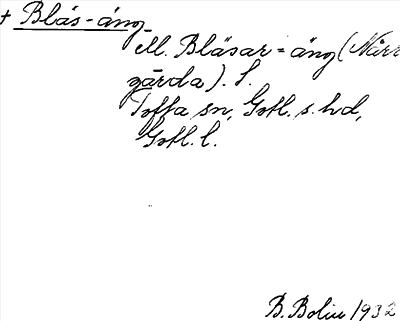 + Blås-äng
Ell. Blåsar=äng (Närr
gårda). S.
Toffa sn, Gotl. s. hd,
Gotl. l.
B. Bolin 1932